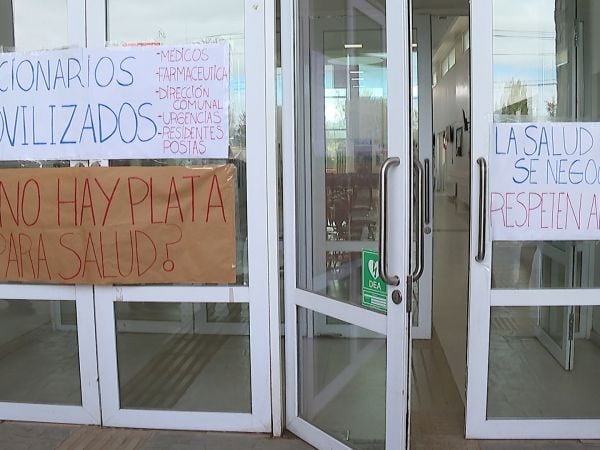 CIONARIOS
OVILIZADOS
-MEDICOS
-FARMACEUTICA
-DIRECCIÓN
COMUNAL
-URGENCIAS
-RESIDENTES
POSTAS
NO HAY PLATA
PARA SALUD?
DEA
LA SALUD
SE NEGO
RESPETEN